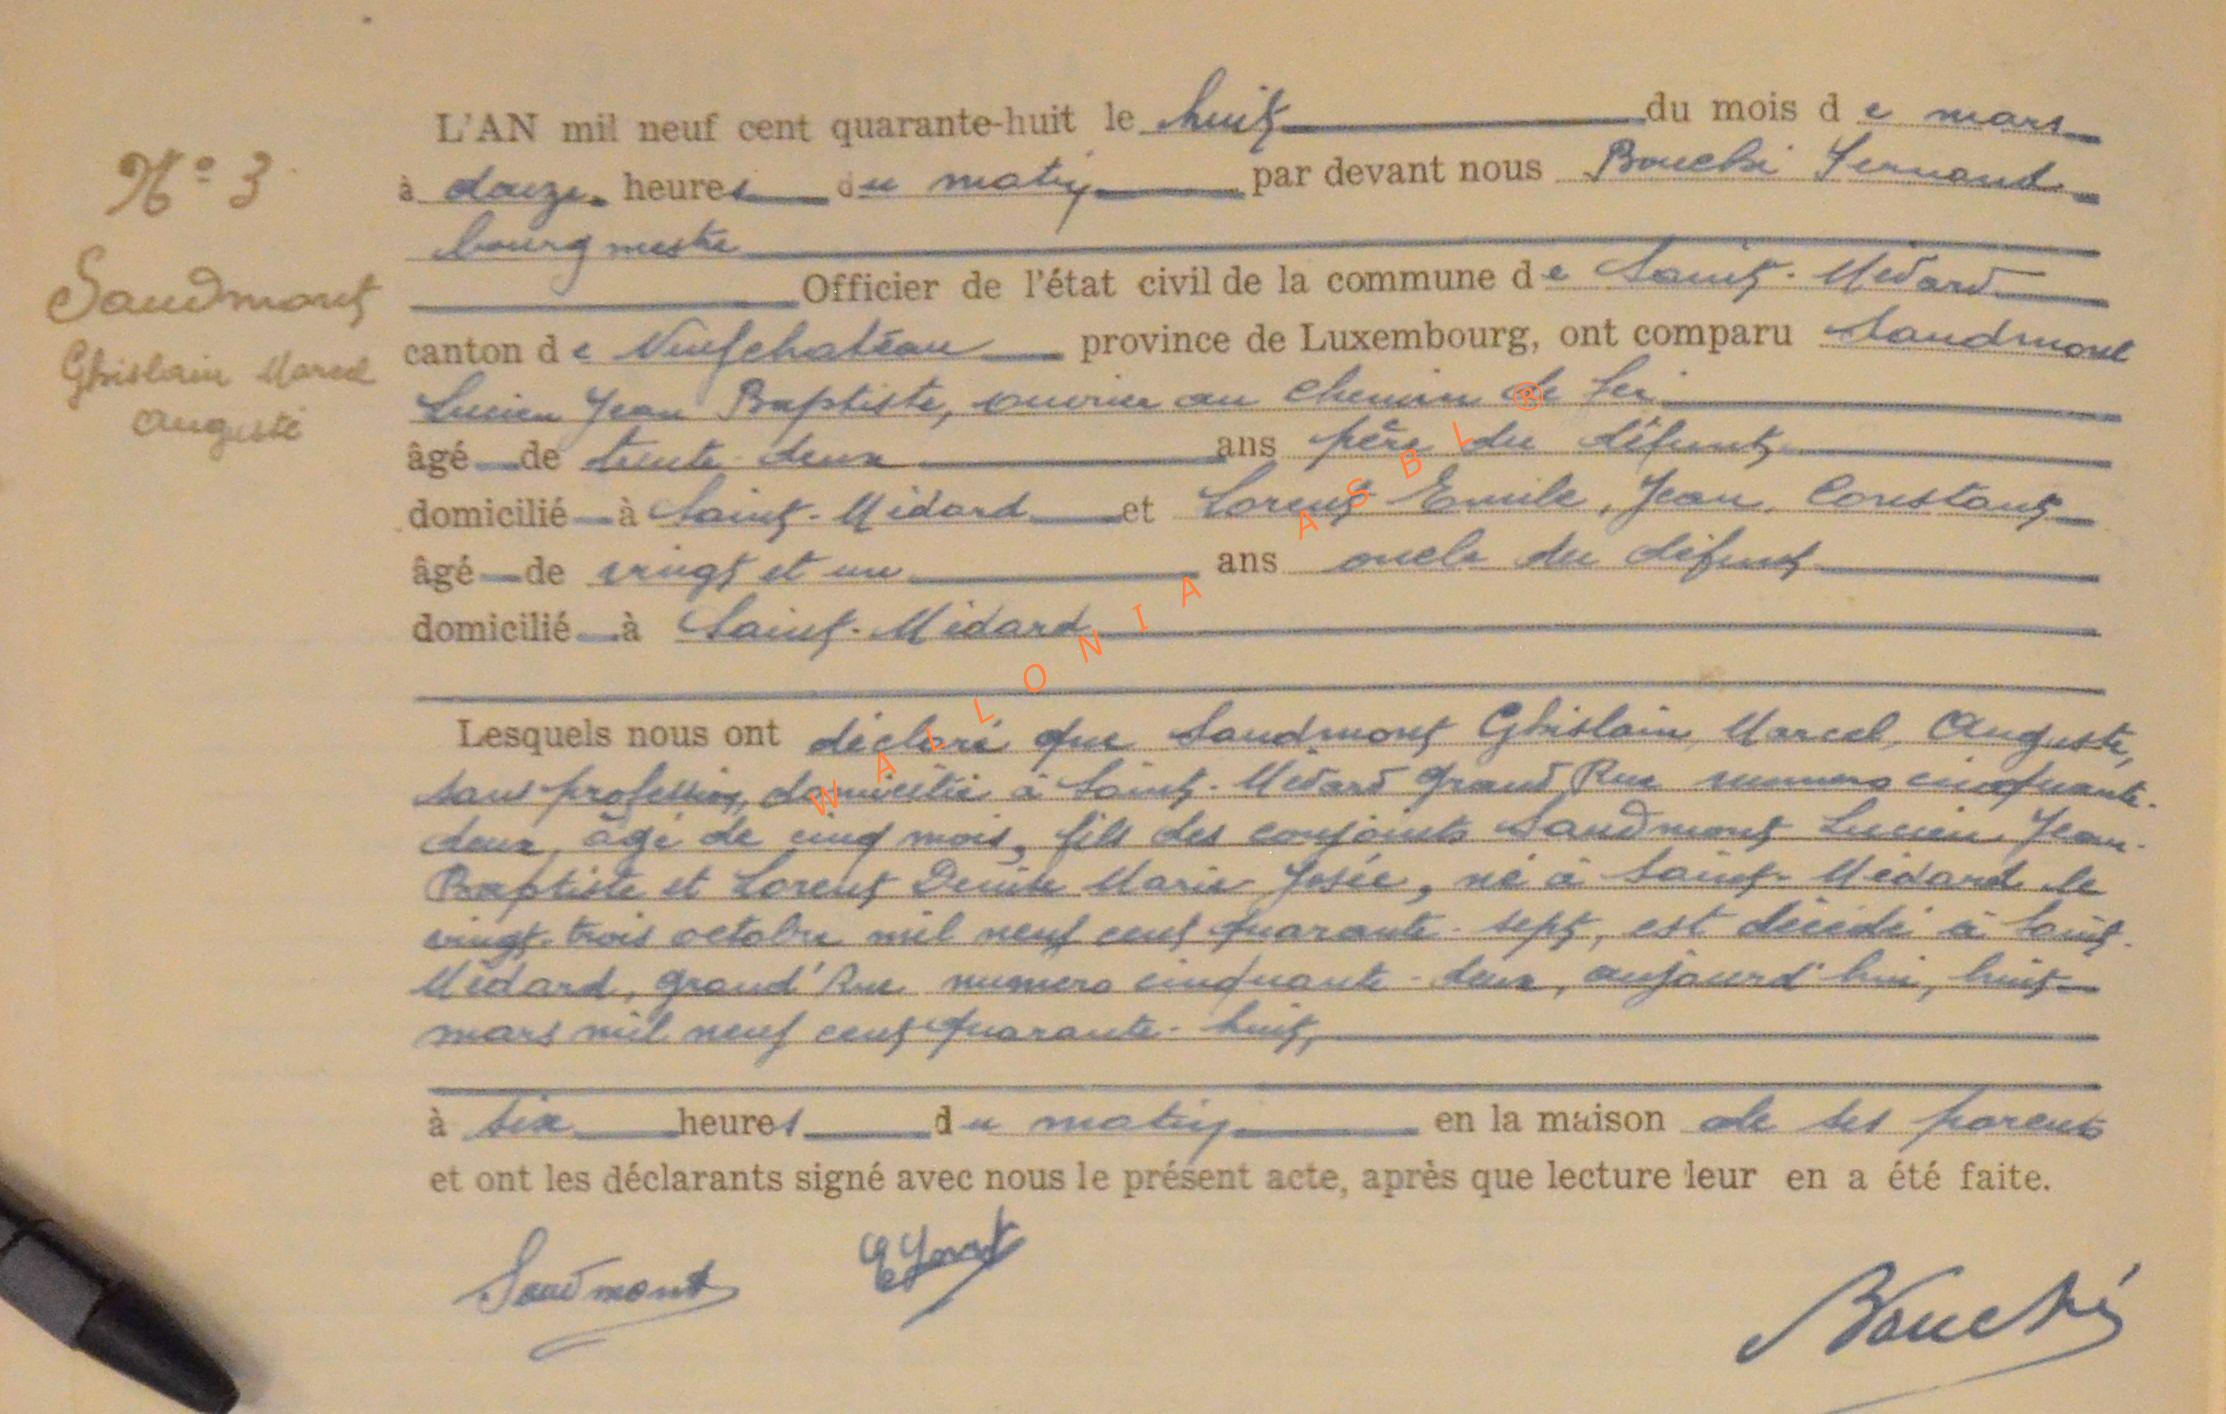 N° 3
Saudmont
Ghislain Marcel
Auguste
L'AN mil neuf cent quarante-huit le huit du mois de mars
à douze heures du matin par devant nous Bouché Fernand
bourgmestre
Officier de l'état civil de la commune de Saint-Médard
canton de Neufchateau province de Luxembourg, ont comparu Saudmont
Lucien Jean Baptiste, ouvrier au chemin de fer
âgé de trente-deux ans père du défunt
domicilié à Saint-Médard et Lorent Emile, Jean, Constant
âgé de vingt et un ans oncle du défunt
domicilié à Saint-Médard
Lesquels nous ont déclaré que Saudmont Ghislain, Marcel, Auguste,
sans profession, domicilié à Saint-Médard Grand Rue numero cinquante-
deux, âgé de cinq mois, fils des conjoints Saudmont Lucien Jean-
Baptiste et Lorent Denise Marie Josée, né à Saint-Médard le
vingt-trois octobre mil neuf cent quarante-sept, est décédé à Saint-
Médard, grand'Rue numero cinquante-deux, aujourd'hui, huit
mars mil neuf cent quarante-huit,
à six heures du matin en la maison de ses parents
et ont les déclarants signé avec nous le présent acte, après que lecture leur en a été faite.
Saudmont ELorent
Bouché
WALLONIA ASBL ®